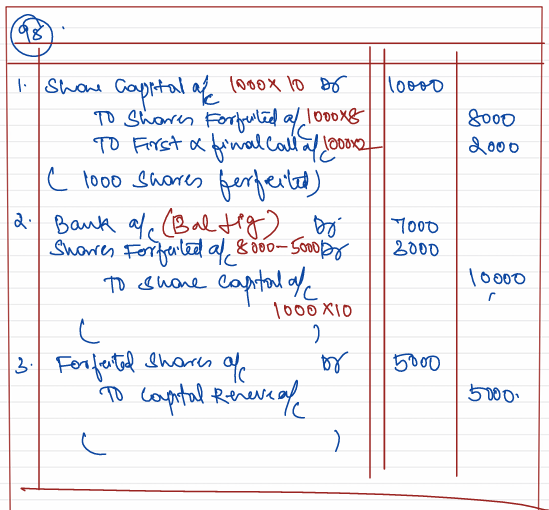 98
1. Share Capital a/c 1000×10 Dr 10000
To Shares Forfeited a/c 1000×8 8000
To First & final Call a/c 1000×2 2000
( 1000 Shares forfeited)
2. Bank a/c (Bal fig) Dr 7000
Shares Forfeited a/c 8000-5000 Dr 3000
To Share Capital a/c 10000
1000×10
( )
3. Forfeited Shares a/c Dr 5000
To Capital Reserve a/c 5000.
( )